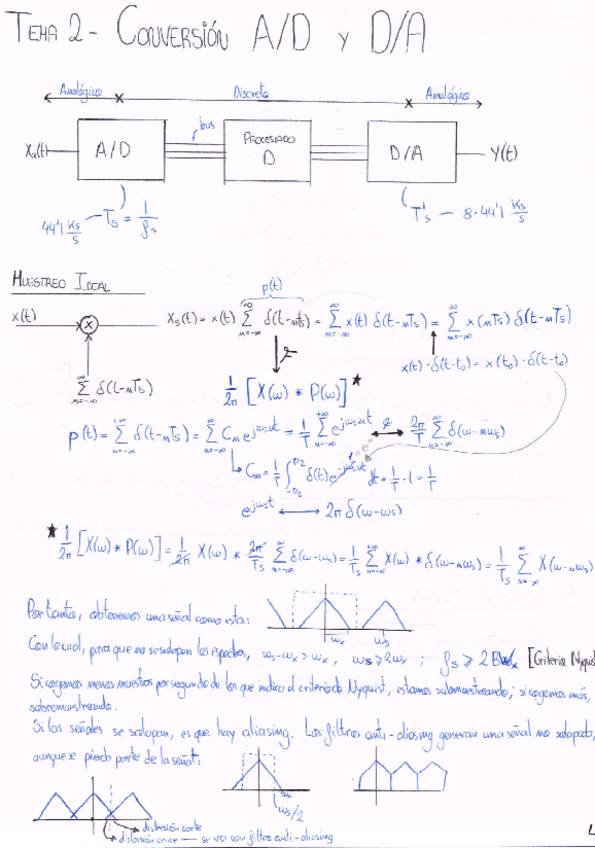 TEMA 2 - CONVERSIÓN A/D Y D/A
Analógico Discreto Analógico
bus
Xa(t) A/D PROCESADO D D/A Y(t)
44'1 Ks/s — Ts = 1/fs T's — 8·44'1 Ks/s
MUESTREO IDEAL
p(t)
x(t) × Xs(t) = x(t) Σ δ(t-nTs) = Σ x(t) δ(t-nTs) = Σ x(nTs) δ(t-nTs)
x(t)·δ(t-t₀) = x(t₀)·δ(t-t₀)
Σ δ(t-nTs) 1/2π [X(ω) * P(ω)] ★
p(t) = Σ δ(t-nTs) = Σ Cn e^jωsnt = 1/T Σ e^jωsnt ↔ 2π/T Σ δ(ω-nωs)
Cn = 1/T ∫ δ(t) e^-jωsnt dt = 1/T · 1 = 1/T
e^jωst ↔ 2π δ(ω-ωs)
★ 1/2π [X(ω) * P(ω)] = 1/2π X(ω) * 2π/Ts Σ δ(ω-nωs) = 1/Ts Σ X(ω) * δ(ω-nωs) = 1/Ts Σ X(ω-nωs)
Por tanto, obtenemos una señal como esta:
ωx ωs
Con lo cual, para que no se solapen los espectros, ωs-ωx > ωx, ωs ≥ 2ωx ; fs ≥ 2 [Criterio Nyquist
Si cogemos menos muestras por segundo de las que indica el criterio de Nyquist, estamos submuestreando; si cogemos más,
sobremuestreando.
Si las señales se solapan, es que hay aliasing. Los filtros anti-aliasing generan una señal no solapada,
aunque se pierda parte de la señal:
ωx
ωs/2
distorsión corte
distorsión cruce — se va con filtro anti-aliasing
4